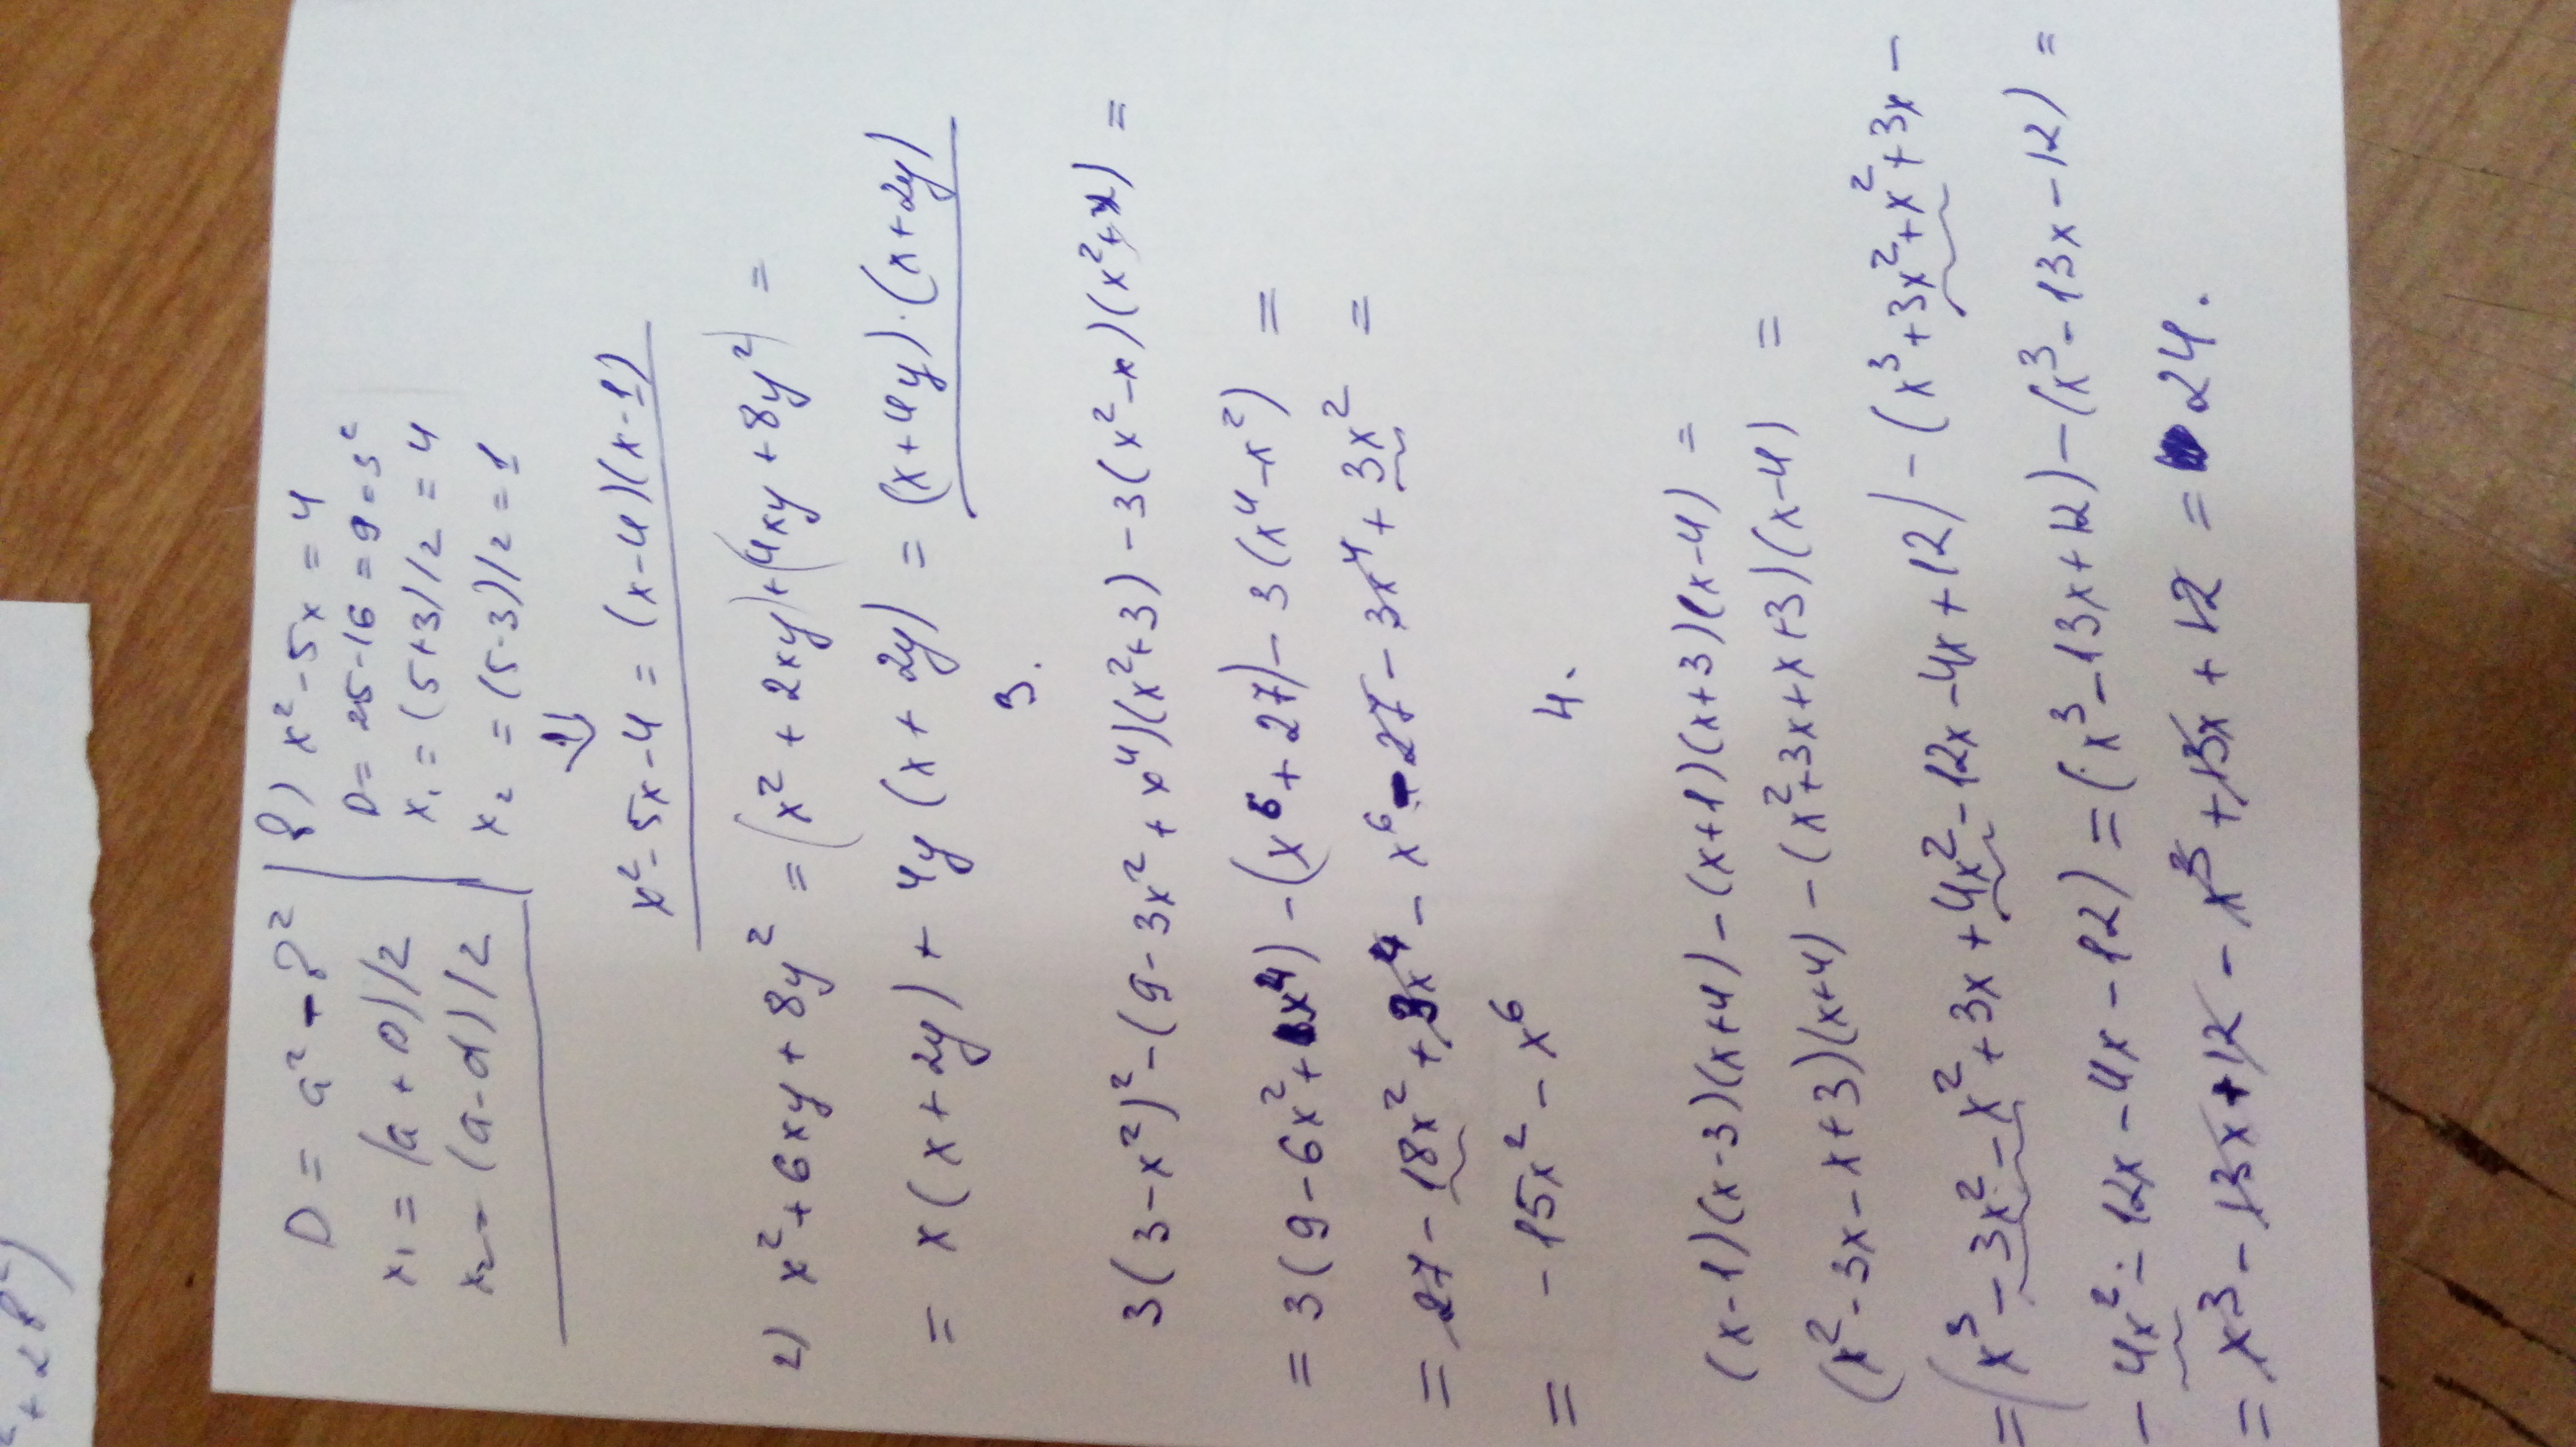 ² + 2 8²)
D = a² - 8²
x₁ = (a + D)/2
x₂ - (a - d)/2
8) x² - 5x = 4
D = 25 - 16 = 9 = 3²
x₁ = (5+3)/2 = 4
x₂ = (5-3)/2 = 1
⇓
x² - 5x - 4 = (x - 4)(x - 1)
2) x² + 6xy + 8y² = (x² + 2xy) + (4xy + 8y²) =
= x(x + 2y) + 4y(x + 2y) = (x + 4y)·(x + 2y)
3.
3(3 - x²)² - (9 - 3x² + x⁴)(x² + 3) - 3(x² - x)(x² + x) =
= 3(9 - 6x² + x⁴) - (x⁶ + 27) - 3(x⁴ - x²) =
= 27 - 18x² + 3x⁴ - x⁶ - 27 - 3x⁴ + 3x² =
= - 15x² - x⁶
4.
(x - 1)(x - 3)(x + 4) - (x + 1)(x + 3)(x - 4) =
(x² - 3x - x + 3)(x + 4) - (x² + 3x + x + 3)(x - 4) =
= (x³ - 3x² - x² + 3x + 4x² - 12x - 4x + 12) - (x³ + 3x² + x² + 3x -
- 4x² - 12x - 4x - 12) = (x³ - 13x + 12) - (x³ - 13x - 12) =
= x³ - 13x + 12 - x³ + 13x + 12 = 24.